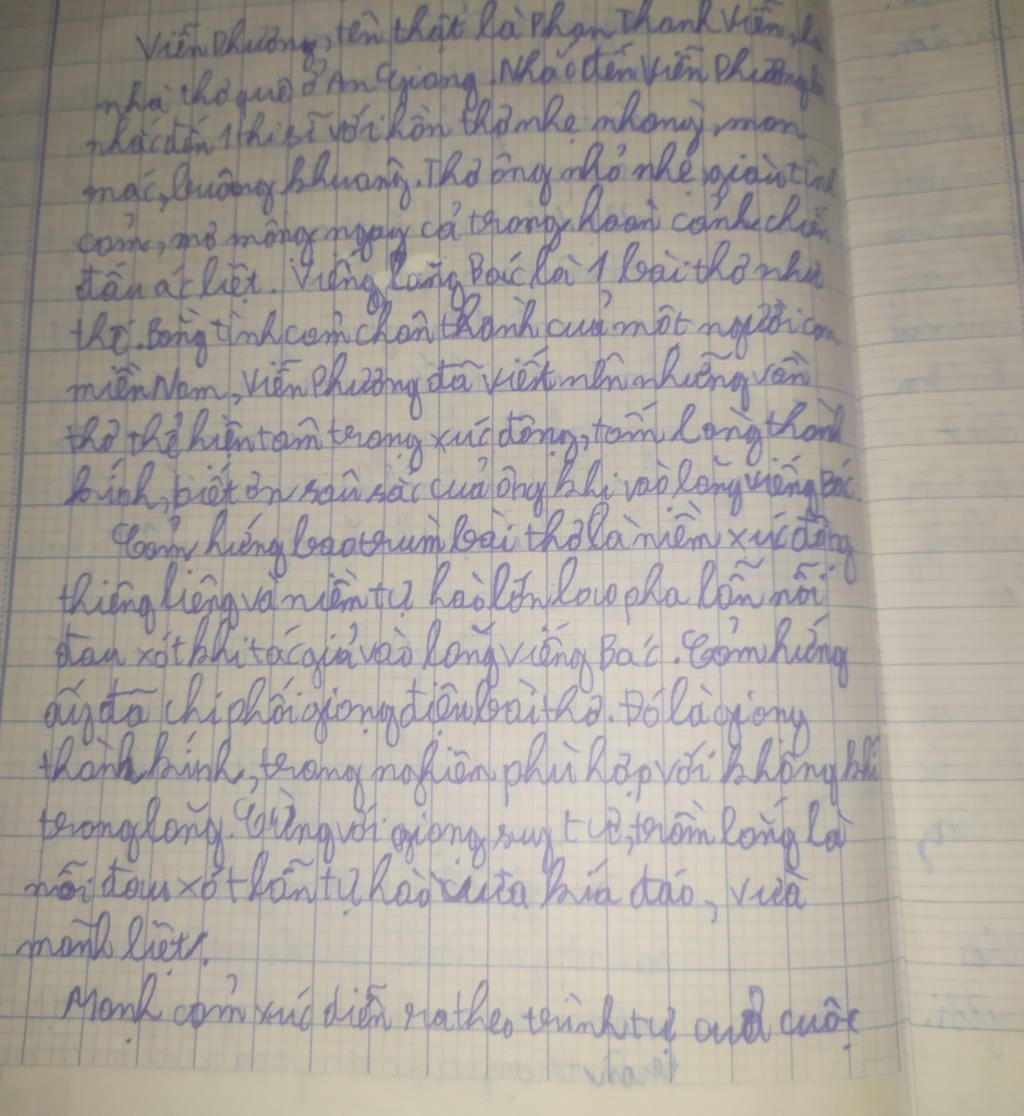 Viễn Phương, tên thật là Phan Thanh Viễn, là
nhà thơ quê ở An Giang. Nhắc đến Viễn Phương là
nhắc đến 1 thi sĩ với hồn thơ nhẹ nhàng, man
mác, buâng khuâng. Thơ ông nhỏ nhẹ, giàu tình
cảm, mơ mộng ngay cả trong hoàn cảnh chiến
đấu ác liệt. Viếng lăng Bác là 1 bài thơ như
thế. Bằng tình cảm chân thành của một người con
miền Nam, Viễn Phương đã viết nên những vần
thơ thể hiện tâm trạng xúc động, tấm lòng thành
kính, biết ơn sâu sắc của ông khi vào lăng viếng Bác.
Cảm hứng bao trùm bài thơ là niềm xúc động
thiêng liêng và niềm tự hào lớn lao pha lẫn nỗi
đau xót khi tác giả vào lăng viếng Bác. Cảm hứng
ấy đã chi phối giọng điệu bài thơ. Đó là giọng
thành kính, trang nghiêm phù hợp với không khí
trong lăng. Cùng với giọng suy tư, trầm lắng là
nỗi đau xót lẫn tự hào vừa kín đáo, vừa
mãnh liệt.
Mạnh cảm xúc diễn ra theo trình tự của cuộc